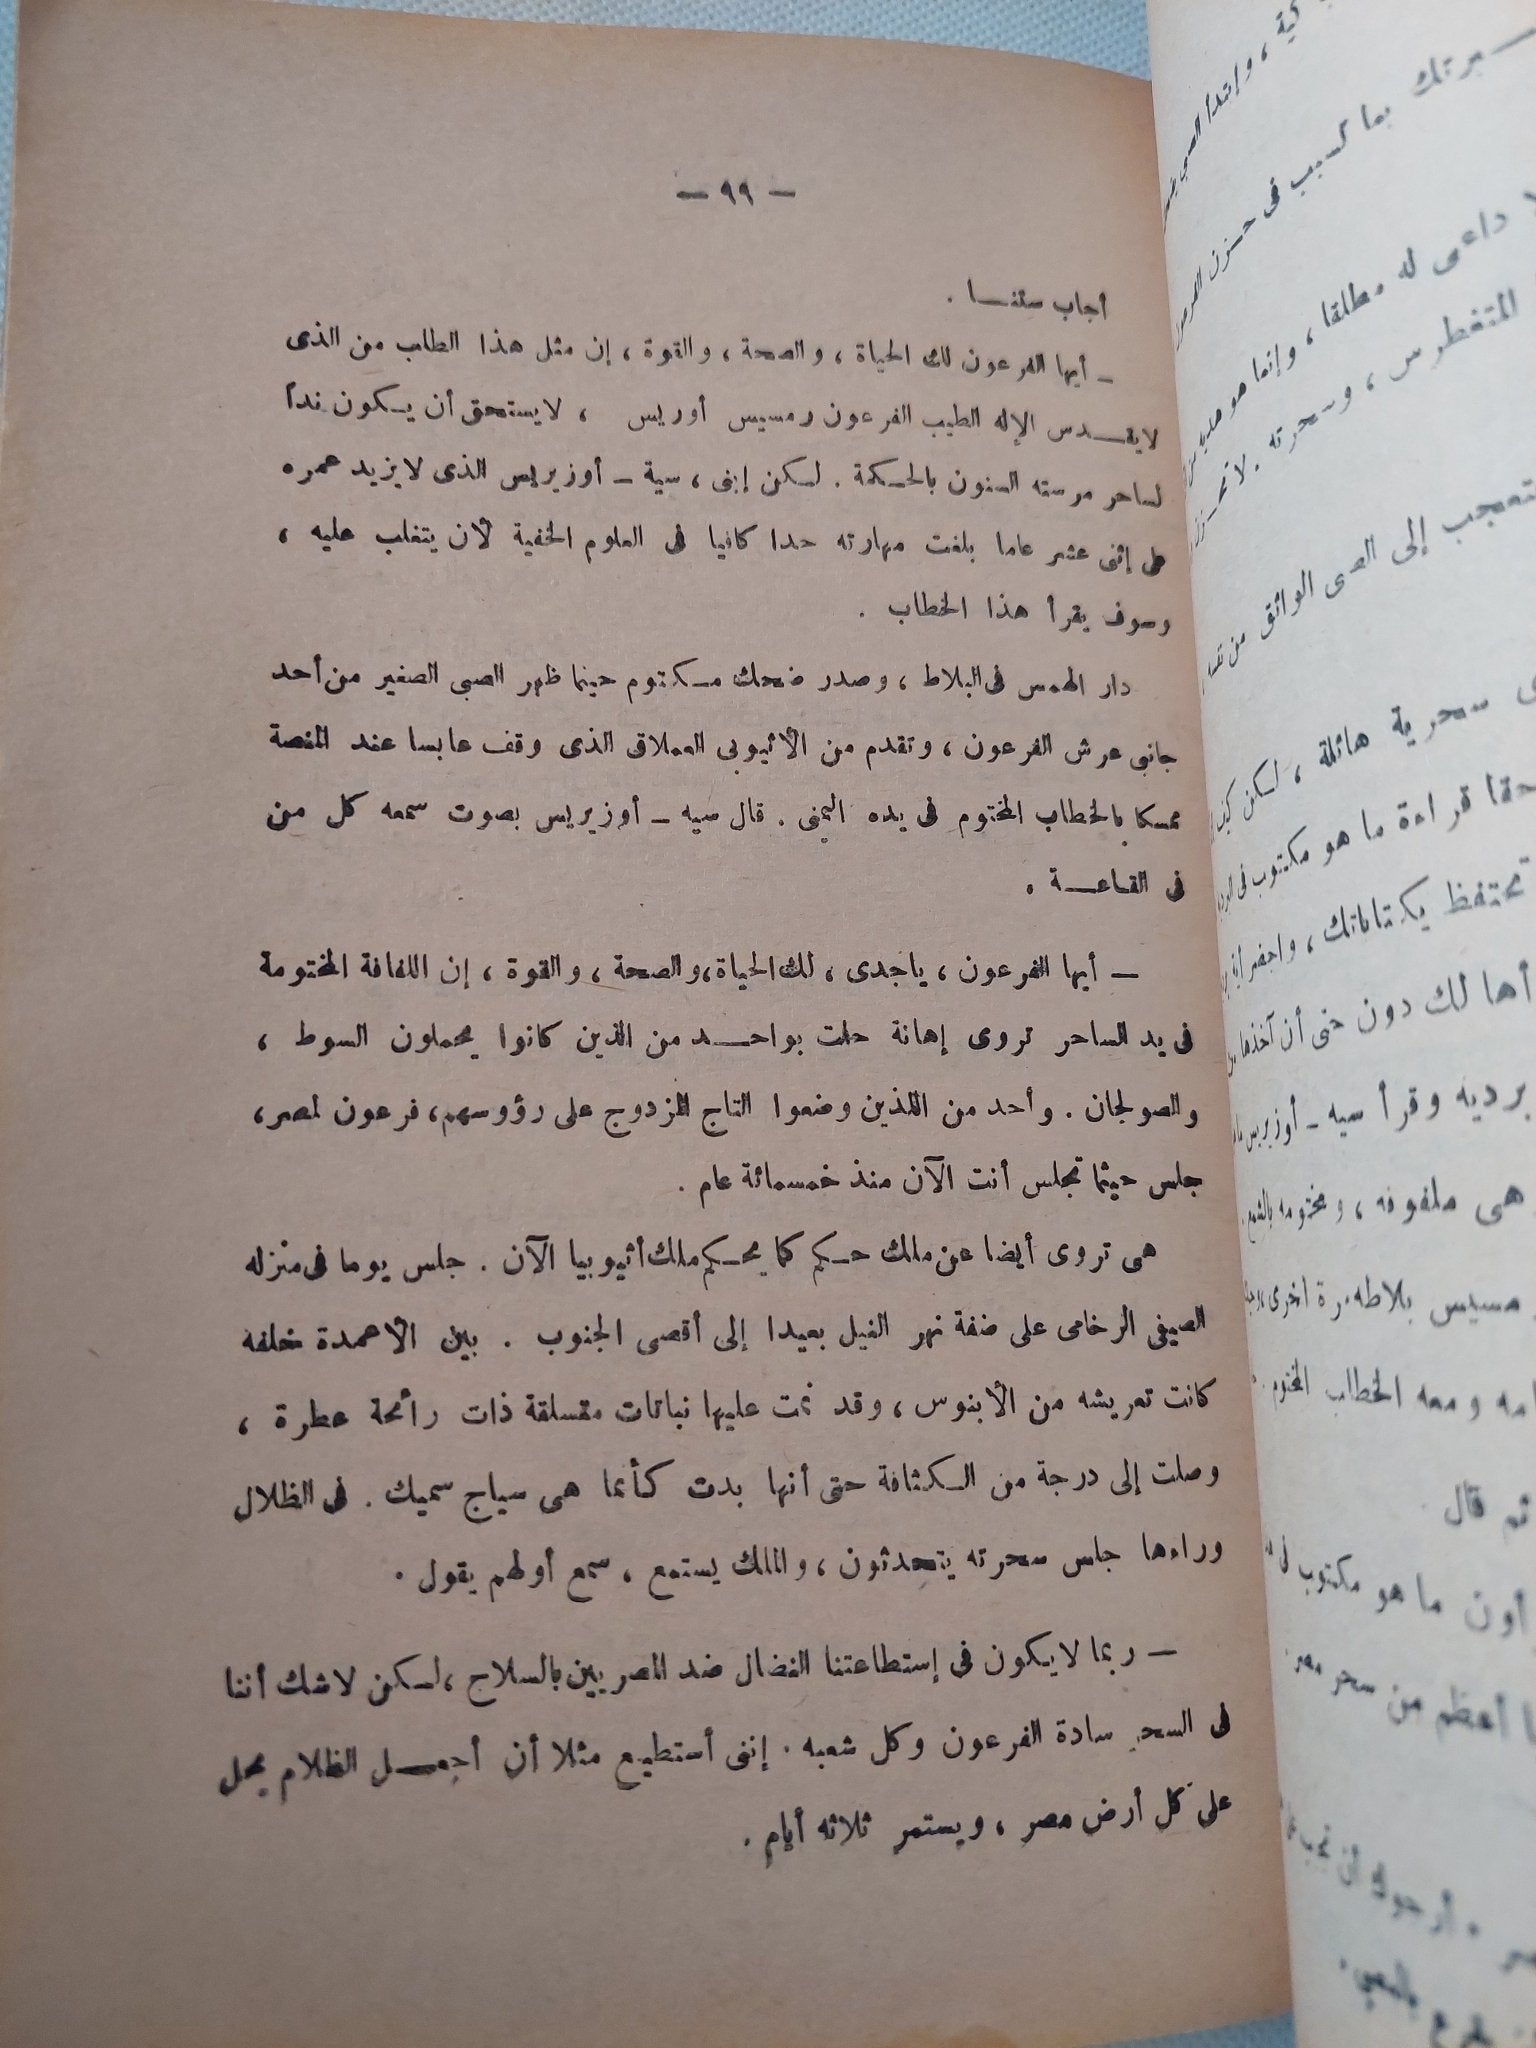 — ٩٩ —
أجاب ستنا .
— أيها الفرعون لك الحياة ، والصحة ، والقوة ، إن مثل هذا الطلب من الذى
لايقدس الإله الطيب الفرعون رمسيس أوريس ، لايستحق أن يكون نداً
لساحر مرسته السنون بالحكمة . لكن إبنى ، سية – أوزيريس الذى لايزيد عمره
على إثنى عشر عاما بلغت مهارته حدا كافيا فى العلوم الخفية لأن يتغلب عليه ،
وسوف يقرأ هذا الخطاب .
دار الهمس فى البلاط ، وصدر ضحك مكتوم حينما ظهر الصبى الصغير من أحد
جانبى عرش الفرعون ، وتقدم من الأثيوبى العملاق الذى وقف عابسا عند المنصة
ممسكا بالخطاب المختوم فى يده اليمنى . قال سيه – أوزيريس بصوت سمعه كل من
فى القاعة .
— أيها الفرعون ، ياجدى ، لك الحياة ، والصحة ، والقوة ، إن اللفافة المختومة
فى يد الساحر تروى إهانة حلت بواحد من الذين كانوا يحملون السوط ،
والصولجان . وأحد من اللذين وضعوا التاج المزدوج على رؤوسهم، فرعون لمصر،
جلس حيثما تجلس أنت الآن منذ خمسمائة عام .
هى تروى أيضا عن ملك حكم كما يحكم ملك أثيوبيا الآن . جلس يوما فى منزله
الصيفى الرخامى على ضفة نهر النيل بعيدا إلى أقصى الجنوب . بين الأعمدة خلفه
كانت تعريشه من الأبنوس ، وقد نمت عليها نباتات متسلقة ذات رائحة عطرة ،
وصلت إلى درجة من الكثافة حتى أنها بدت كأنما هى سياج سميك . فى الظلال
وراءها جلس سحرته يتحدثون ، والملك يستمع ، سمع أولهم يقول .
— ربما لايكون فى إستطاعتنا النضال ضد المصريين بالسلاح ، لكن لاشك أننا
فى السحر سادة الفرعون وكل شعبه . إننى أستطيع مثلا أن أجعل الظلام يحل
على كل أرض مصر ، ويستمر ثلاثه أيام .
داعى له مطلقا ، وإنما هو
المتغطرس ، وسحرته .
إلى الصبى الواثق من
سحرية هائلة ، لكن
قراءة ما هو مكتوب فى
تحتفظ بكتاباتك ،
لك دون حتى أن آخذها
وقرأ سيه – أوزيريس
هى ملفوفه ، ومختومه بالشمع
ومعه الخطاب المختوم .
ثم قال
ما هو مكتوب فى
أعظم من سحر مصر